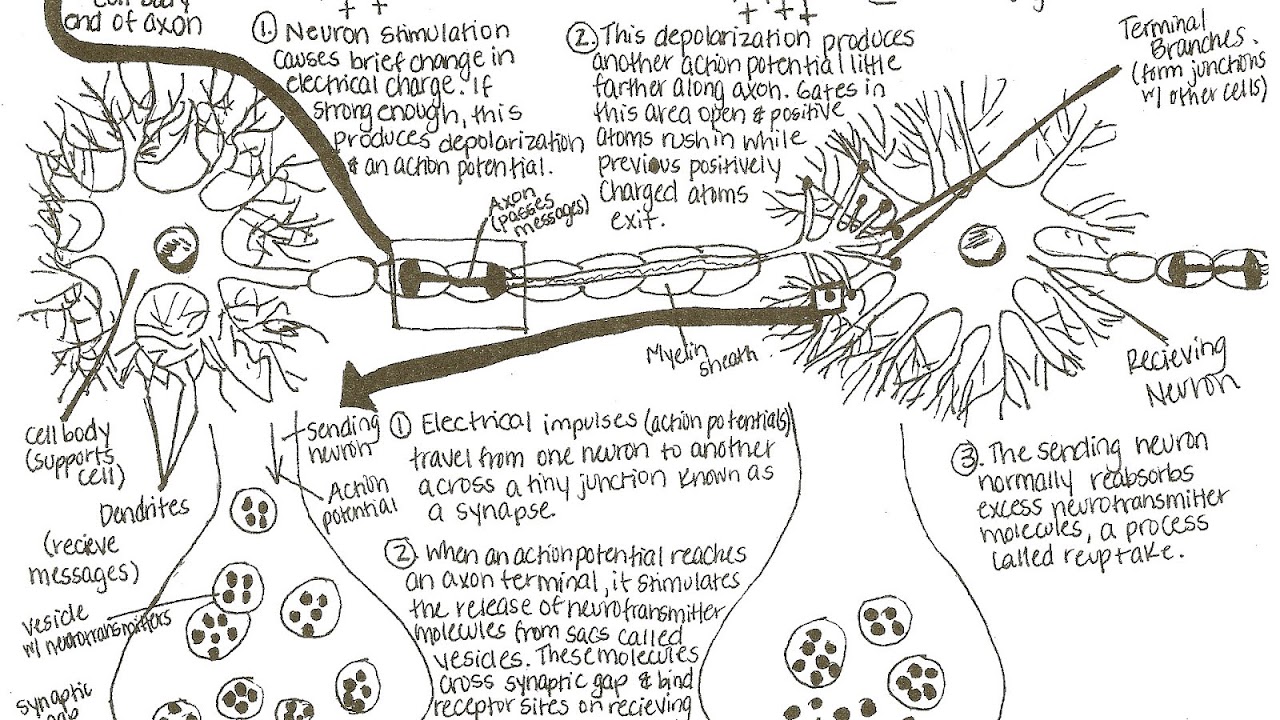 cell body
end of axon
+ +
+ ++
1. Neuron stimulation
causes brief change in
electrical charge. If
strong enough, this
produces depolarization
& an action potential.
2. This depolarization produces
another action potential little
farther along axon. Gates in
this area open & positive
atoms rush in while
previous positively
charged atoms
exit.
Terminal
Branches.
(form junctions
w/ other cells)
Axon
(passes
messages)
Myelin
sheath
Recieving
Neuron
Cell body
(supports
cell)
Dendrites
(recieve
messages)
sending
neuron
Action
potential
1 Electrical impulses (action potentials)
travel from one neuron to another
across a tiny junction known as
a synapse.
2. When an action potential reaches
an axon terminal, it stimulates
the release of neurotransmitter
molecules from sacs called
vesicles. These molecules
cross synaptic gap & bind
receptor sites on recieving
3. The sending neuron
normally reabsorbs
excess neurotransmitter
molecules, a process
called reuptake.
vesicle
w/ neurotransmitters
synaptic